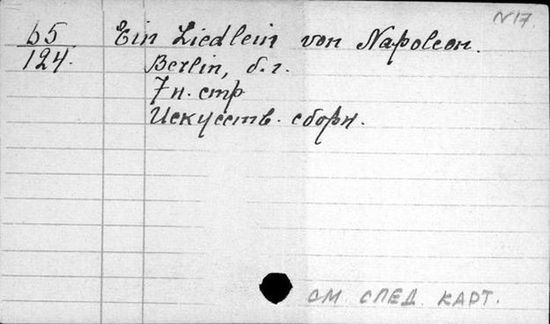 N17.
Б5 Ein Liedlein von Napoleon.
124. Berlin, б. г.
7 н. стр
Искусств. сборн.
СМ. СЛЕД. КАРТ.